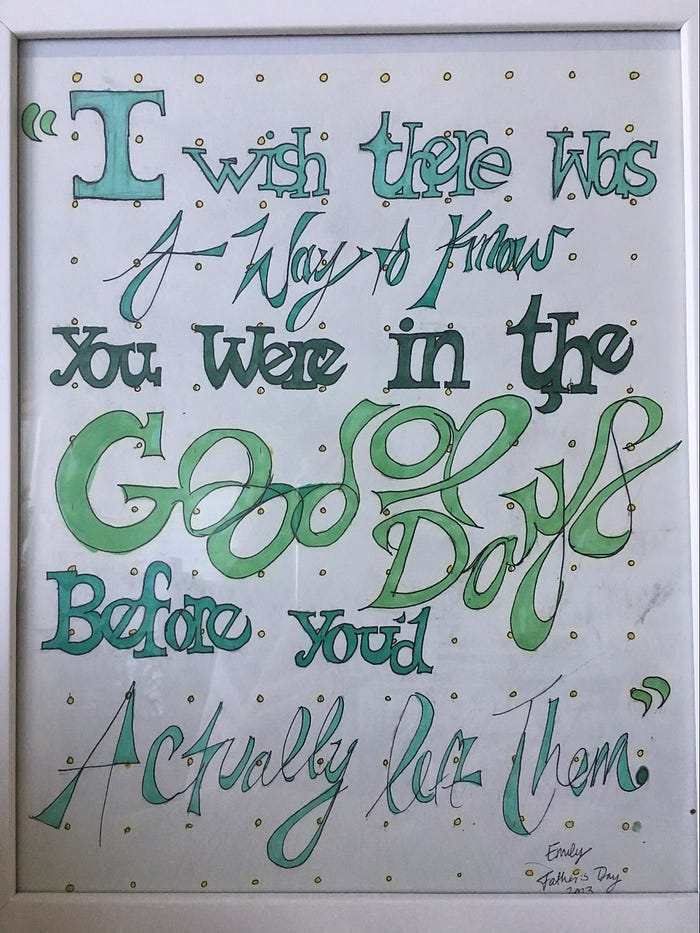 “I wish there was
A Way to Know
You Were in the
Good ol
Days
Before you'd
Actually left Them.”
Emily
Father's Day
2013